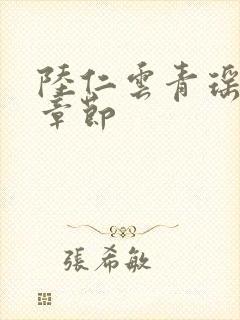 陸仁雲青瑶
章節
張希敏